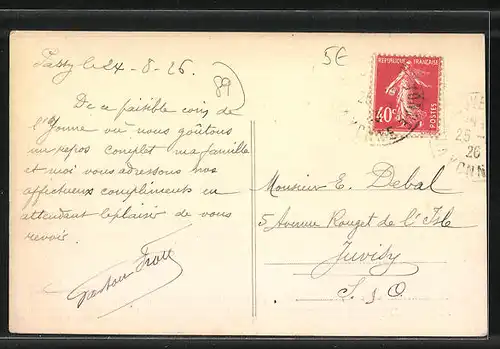 Passy le 24-8-26
5E
89
REPUBLIQUE FRANÇAISE
40c
POSTES
YONNE
25
26
YONNE
De ce paisible coin de
l'Yonne où nous goûtons
un repos complet ma famille
et moi vous adressons nos
affectueux compliments en
attendant le plaisir de vous
revoir.
Gaston
Monsieur E. Debal
5 Avenue Rouget de l'Isle
Juvisy
S. & O